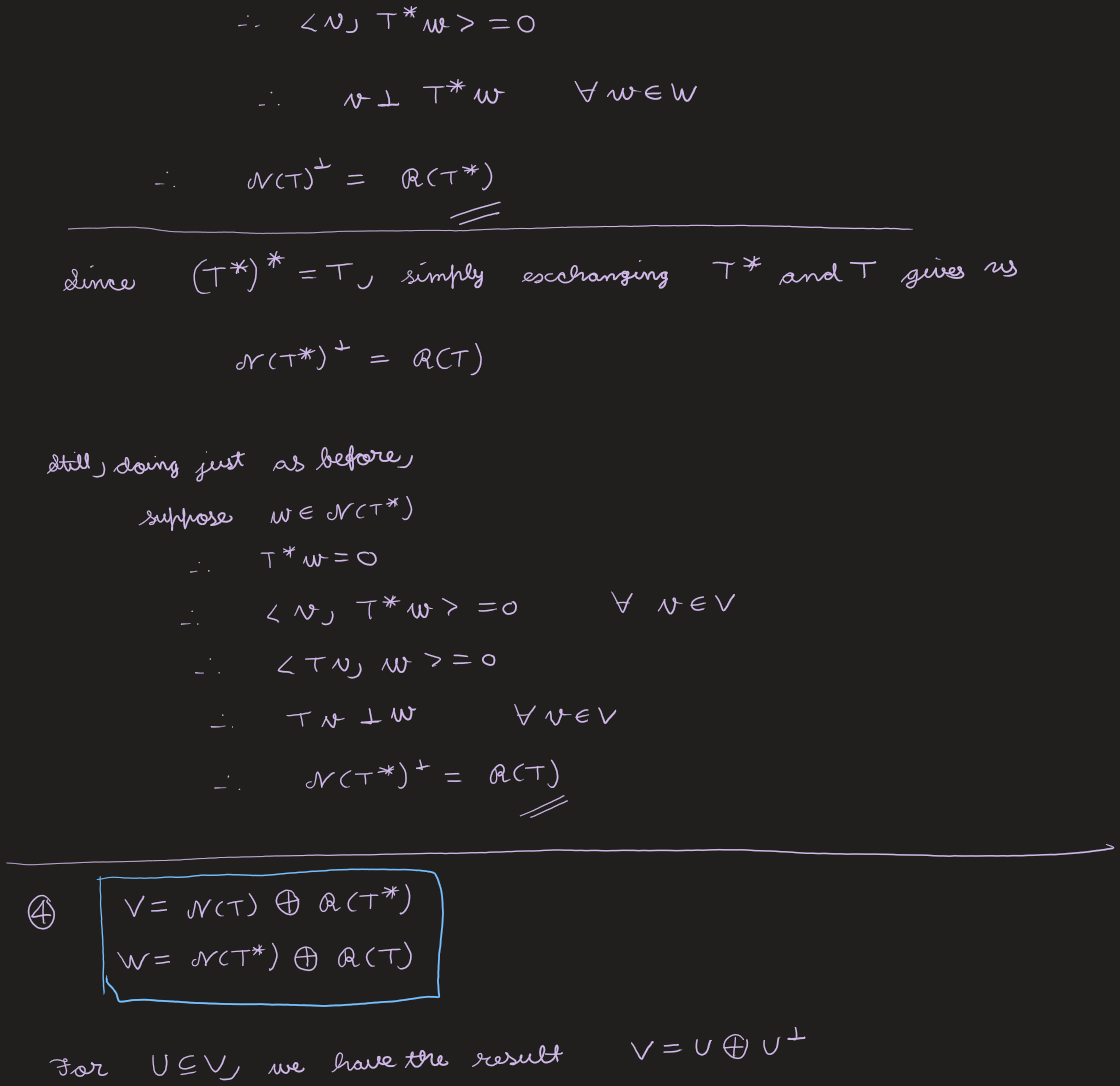 ∴ <v, T*w> = 0
∴ v ⊥ T*w ∀ w ∈ W
∴ N(T)^⊥ = R(T*)
Since (T*)* = T, simply exchanging T* and T gives us
N(T*)^⊥ = R(T)
Still, doing just as before,
suppose w ∈ N(T*)
∴ T*w = 0
∴ <v, T*w> = 0 ∀ v ∈ V
∴ <Tv, w> = 0
∴ Tv ⊥ w ∀ v ∈ V
∴ N(T*)^⊥ = R(T)
④ V = N(T) ⊕ R(T*)
W = N(T*) ⊕ R(T)
For U ⊆ V, we have the result V = U ⊕ U^⊥